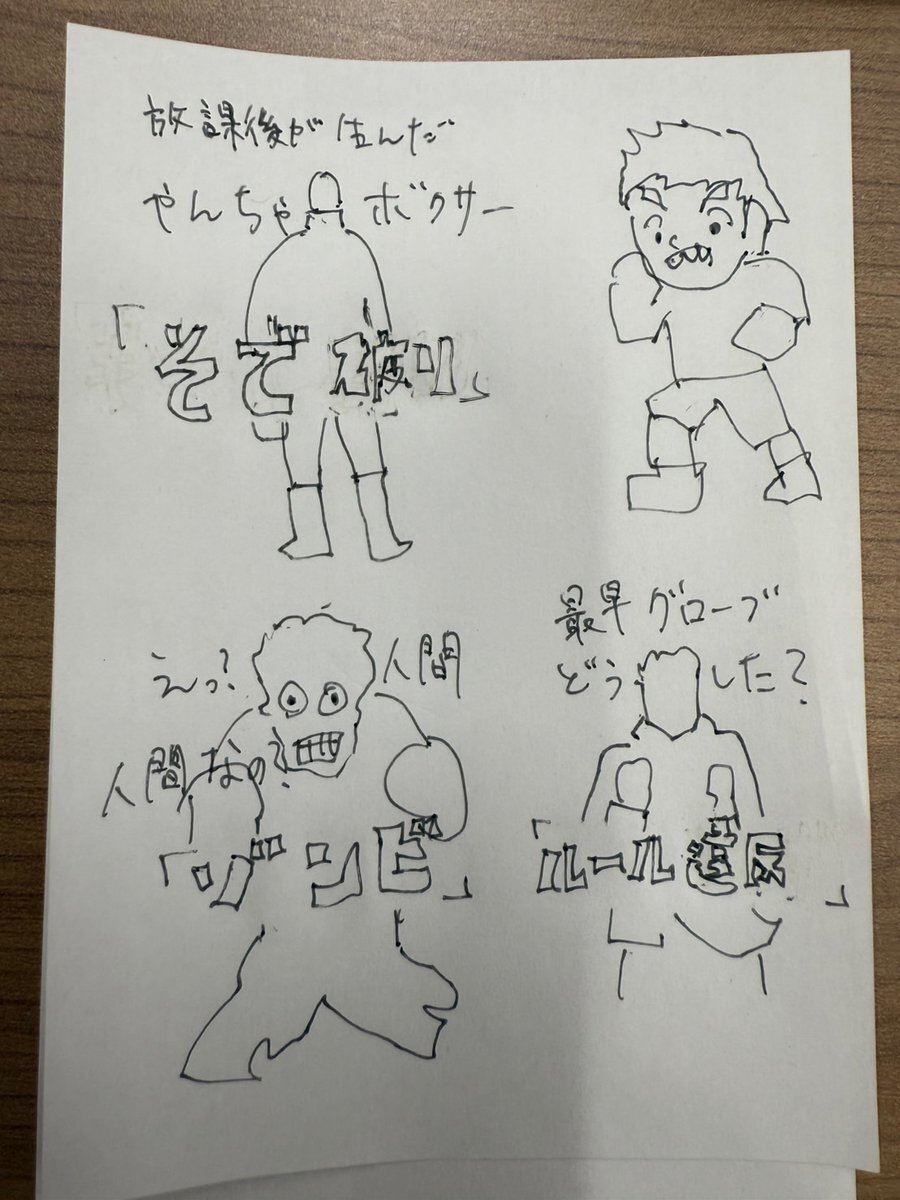 放課後が生んだ
やんちゃボクサー
「そで破り」
えっ?人間
人間なの?
「ゾンビ」
最早グローブ
どうした?
「ルール違反」